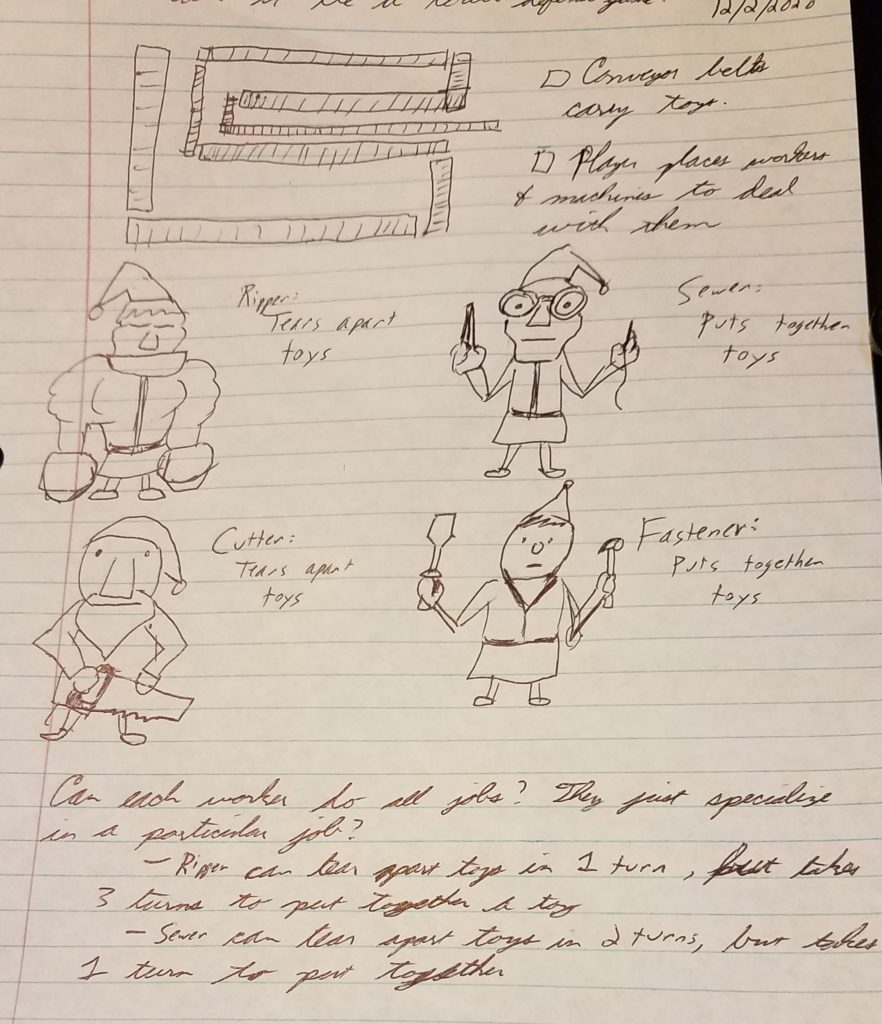 be a tower defense game?
12/2/2020
□ Conveyor belts
carry toys.
□ Player places workers
& machines to deal
with them
Ripper:
Tears apart
toys
Sewer:
Puts together
toys
Cutter:
Tears apart
toys
Fastener:
Puts together
toys
Can each worker do all jobs? They just specialize
in a particular job?
- Ripper can tear apart toys in 1 turn, but takes
3 turns to put together a toy
- Sewer can tear apart toys in 2 turns, but takes
1 turn to put together